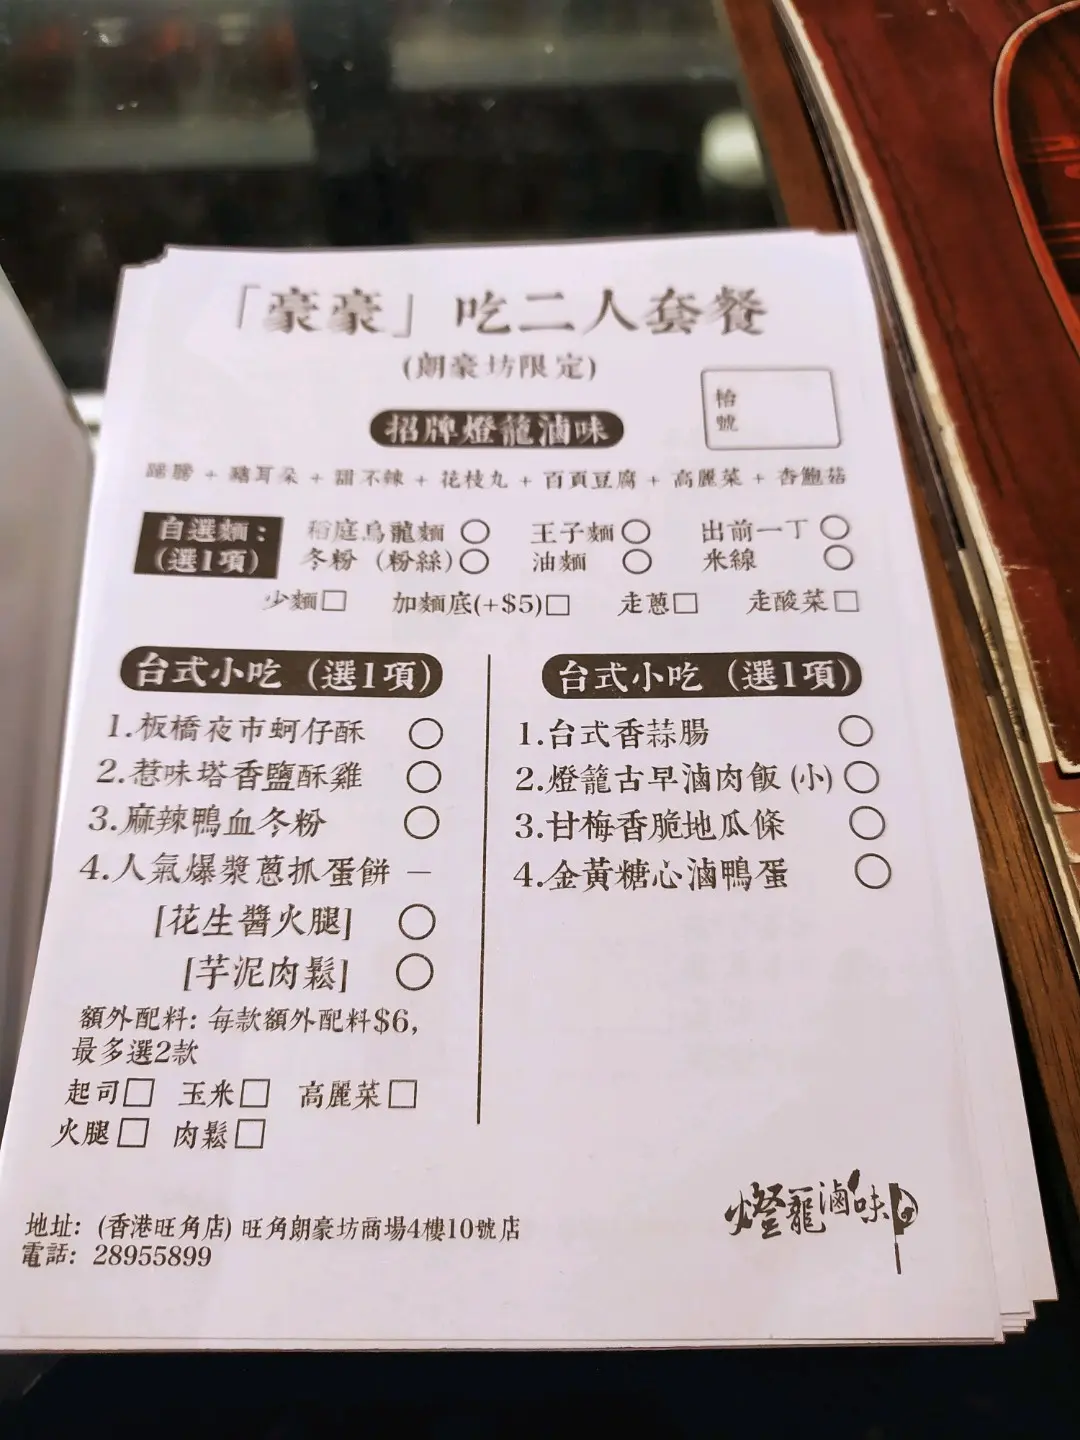 「豪豪」吃二人套餐
(朗豪坊限定)
枱
號
招牌燈龍滷味
蹄膀 + 豬耳朵 + 甜不辣 + 花枝丸 + 百頁豆腐 + 高麗菜 + 杏鮑菇
自選麵： 稻庭烏龍麵 王子麵 出前一丁
(選1項) 冬粉 (粉絲) 油麵 米線
少麵 加麵底(+$5) 走蔥 走酸菜
台式小吃 (選1項)
1.板橋夜市蚵仔酥
2.惹味塔香鹽酥雞
3.麻辣鴨血冬粉
4.人氣爆漿蔥抓蛋餅 —
[花生醬火腿]
[芋泥肉鬆]
額外配料: 每款額外配料$6,
最多選2款
起司 玉米 高麗菜
火腿 肉鬆
台式小吃 (選1項)
1.台式香蒜腸
2.燈籠古早滷肉飯 (小)
3.甘梅香脆地瓜條
4.金黃糖心滷鴨蛋
燈籠滷味
地址: (香港旺角店) 旺角朗豪坊商場4樓10號店
電話: 28955899